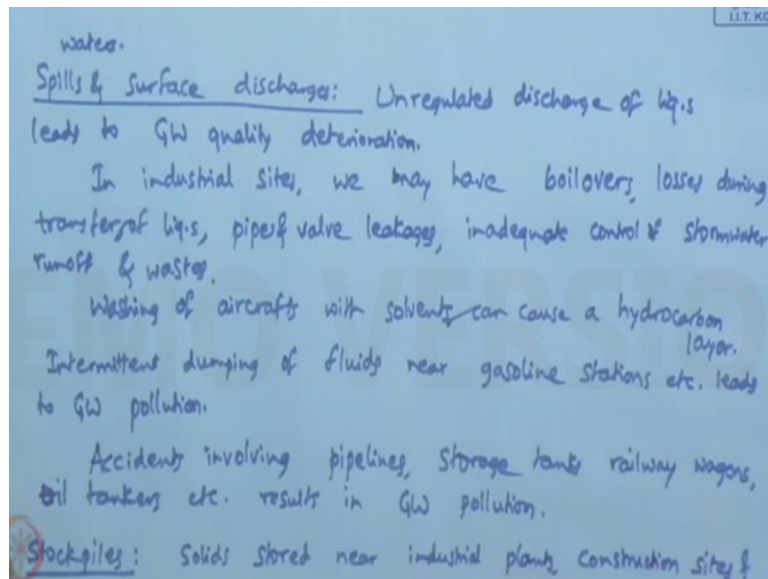 I.I.T. KG
water.
Spills & surface discharges: Unregulated discharge of liq.s
leads to GW quality deterioration.
In industrial sites, we may have boilovers, losses during
transfer of liq.s, pipe & valve leakages, inadequate control of stormwater
runoff & wastes.
Washing of aircrafts with solvents can cause a hydrocarbon
layer.
Intermittent dumping of fluids near gasoline stations etc. leads
to GW pollution.
Accidents involving pipelines, storage tanks railway wagons,
oil tankers etc. results in GW pollution.
Stockpiles: Solids stored near industrial plants, construction sites &
EMO VERSIO